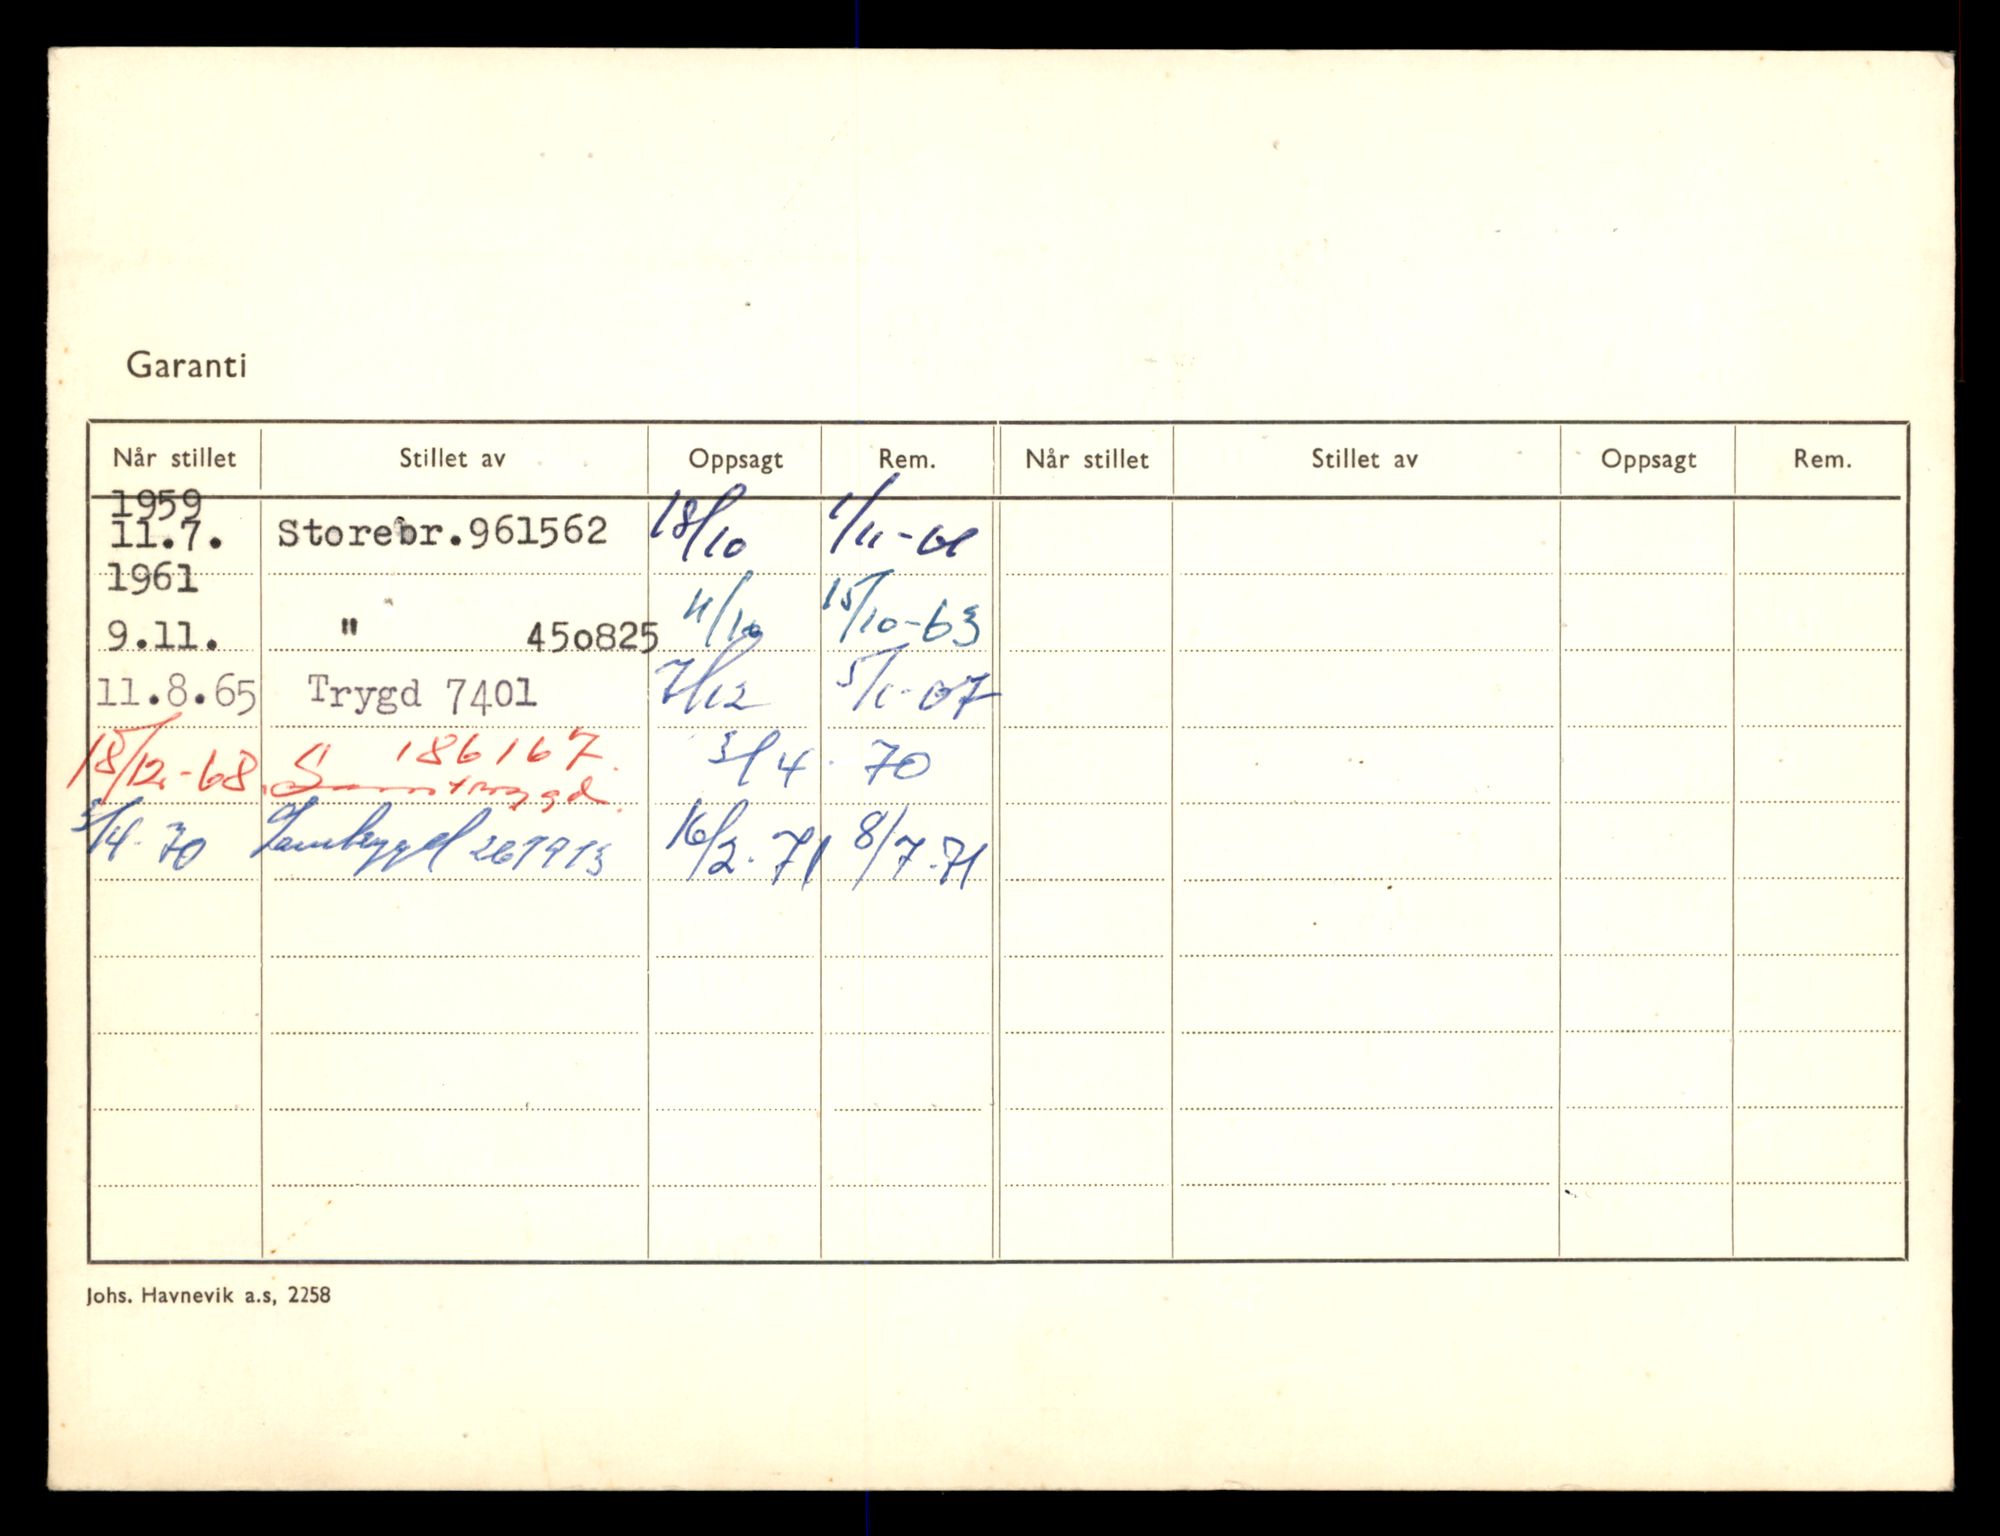 Garanti
Når stillet Stillet av Oppsagt Rem. Når stillet Stillet av Oppsagt Rem.
1959
11.7. Storebr.961562 18/10 1/11-61
1961
9.11. " 450825 11/10 15/10-63
11.8.65 Trygd 7401 7/12 5/1-67
18/12.-68 186167. 3/4. 70
Samtrygd.
3/4.70 Samtrygd 267913 16/2.71 8/7.71
Johs. Havnevik a.s, 2258